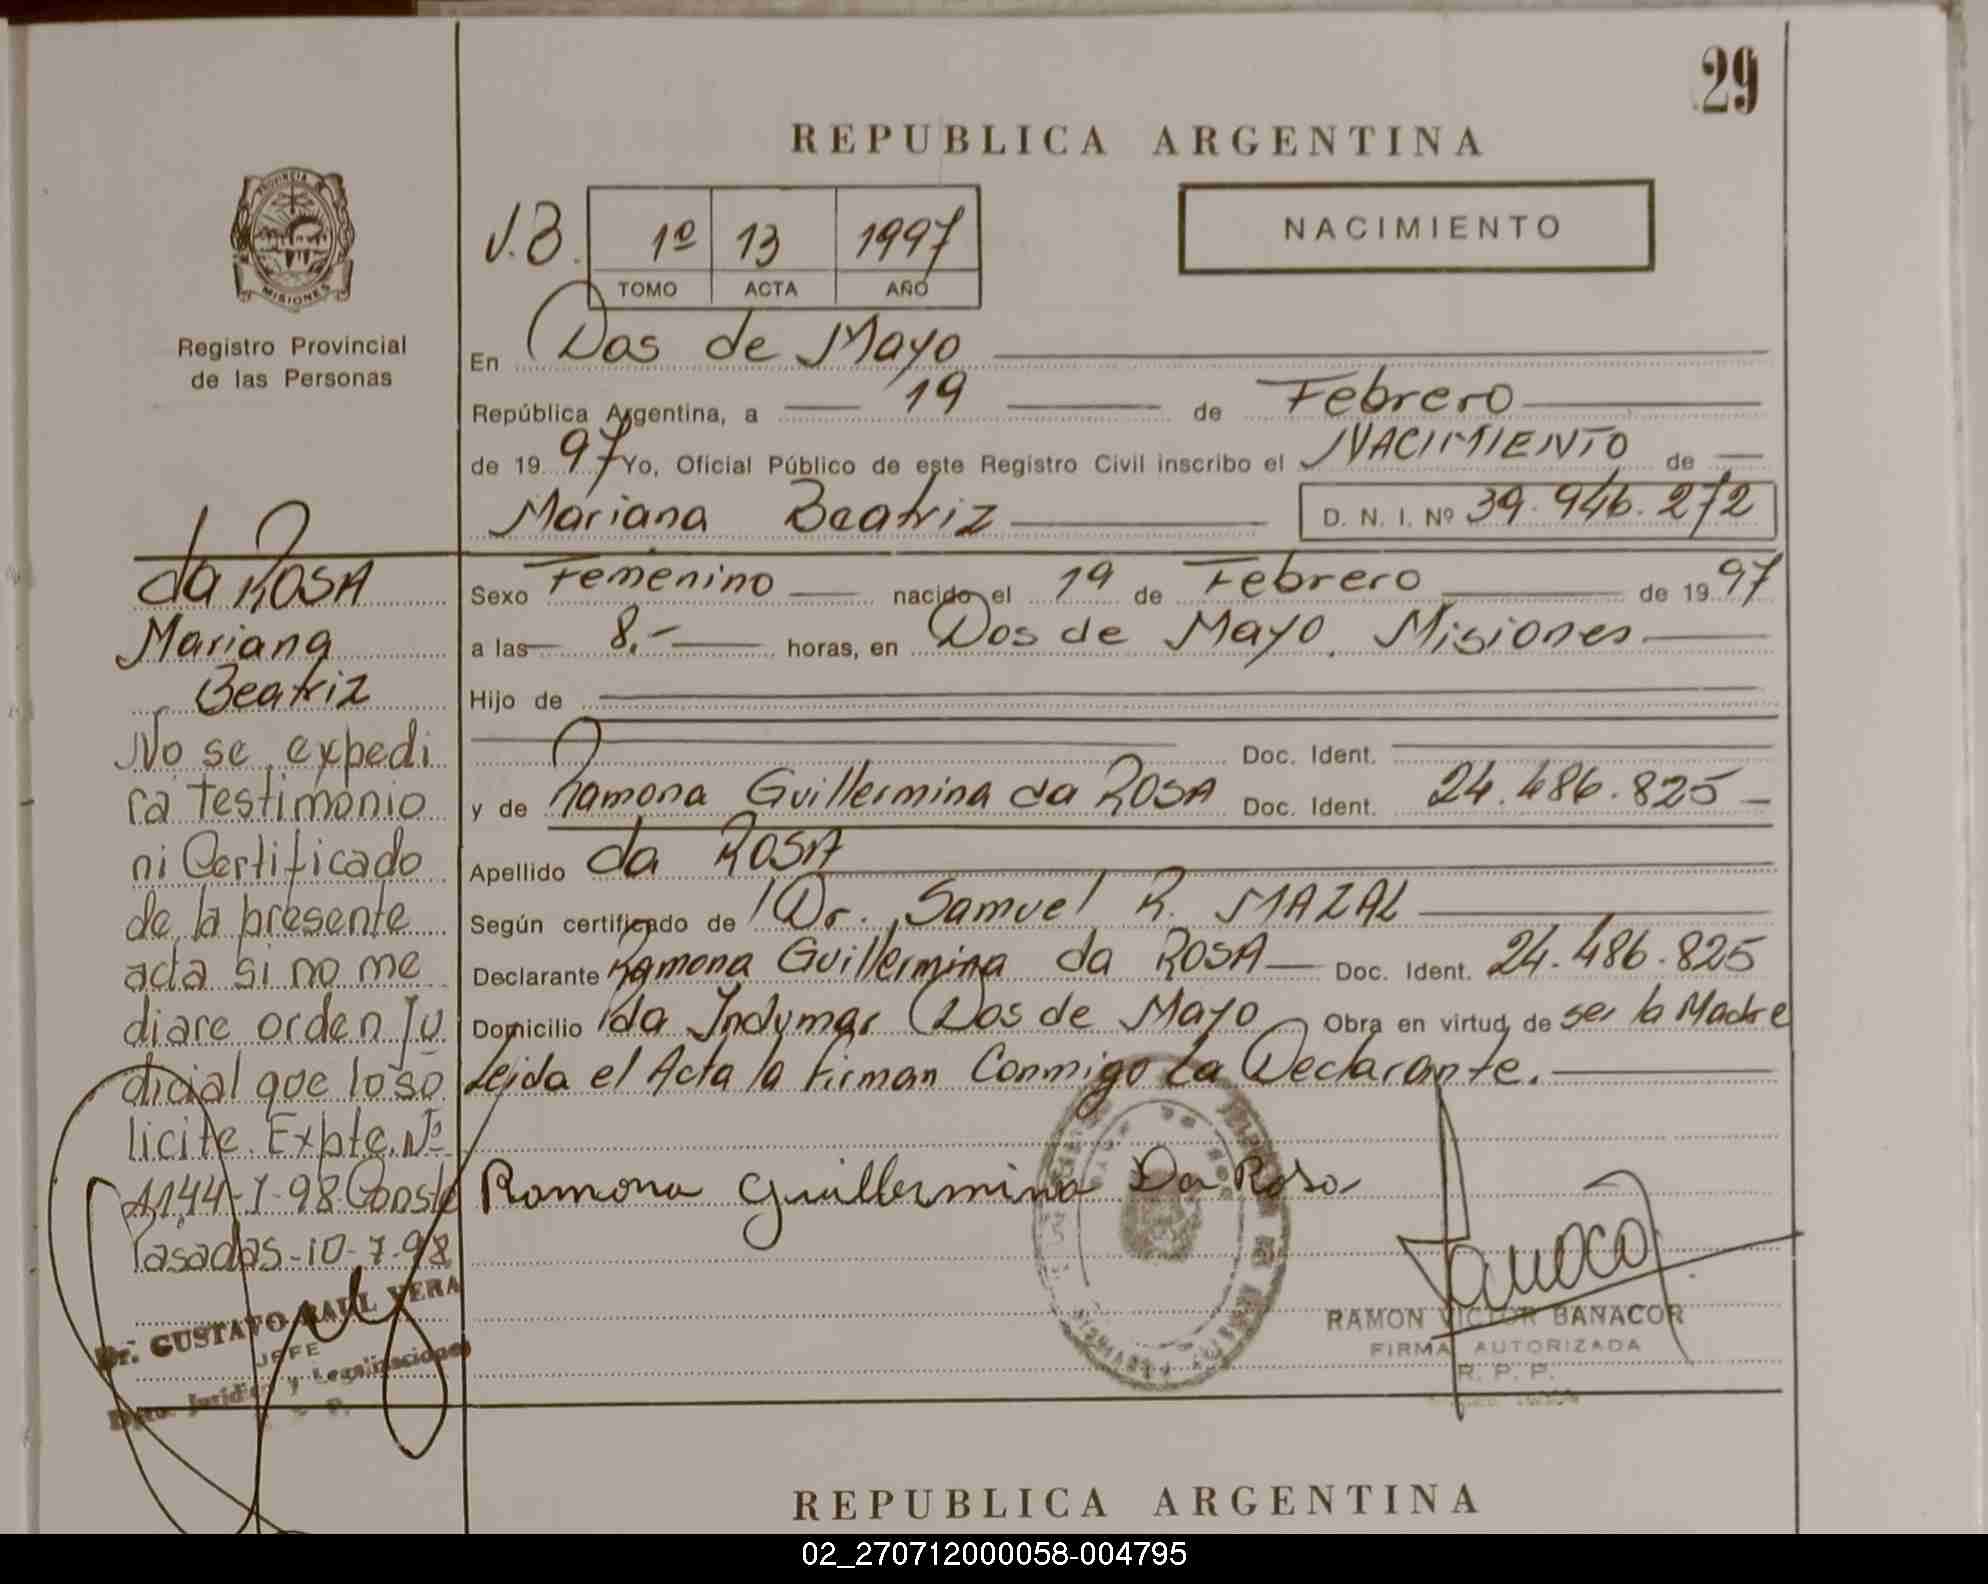 29
REPUBLICA ARGENTINA
PROVINCIA D
MISIONES
Registro Provincial
de las Personas
1º 13 1997
TOMO ACTA AÑO
NACIMIENTO
En Dos de Mayo
República Argentina, a 19 de Febrero
de 19 97 Yo, Oficial Público de este Registro Civil inscribo el NACIMIENTO de
Mariana Beatriz D. N. I. Nº 39.946.272
Sexo Femenino nacido el 19 de Febrero de 19 97
a las 8.- horas, en Dos de Mayo, Misiones
Hijo de
Doc. Ident.
y de Ramona Guillermina da ROSA Doc. Ident. 24.486.825
Apellido da ROSA
Según certificado de Dr. Samuel R. MAZAL
Declarante Ramona Guillermina da ROSA Doc. Ident. 24.486.825
Domicilio Indymar Dos de Mayo Obra en virtud de ser la Madre
Leida el Acta la Firman Conmigo La Declarante.
Ramona Guillermina Da Rosa
RAMON VICTOR BANACOR
FIRMA AUTORIZADA
R. P. P.
da ROSA
Mariana
Beatriz
No se expedi
ra testimonio
ni Certificado
de la presente
acta si no me
diare orden Ju
dicial que lo so
licite. Expte. Nº
1144-1-98 Conste
Posadas-10-7-98
Dr. GUSTAVO RAUL VERA
JEFE
Dpto. Jurídico y Legalizaciones
REPUBLICA ARGENTINA
02_270712000058-004795